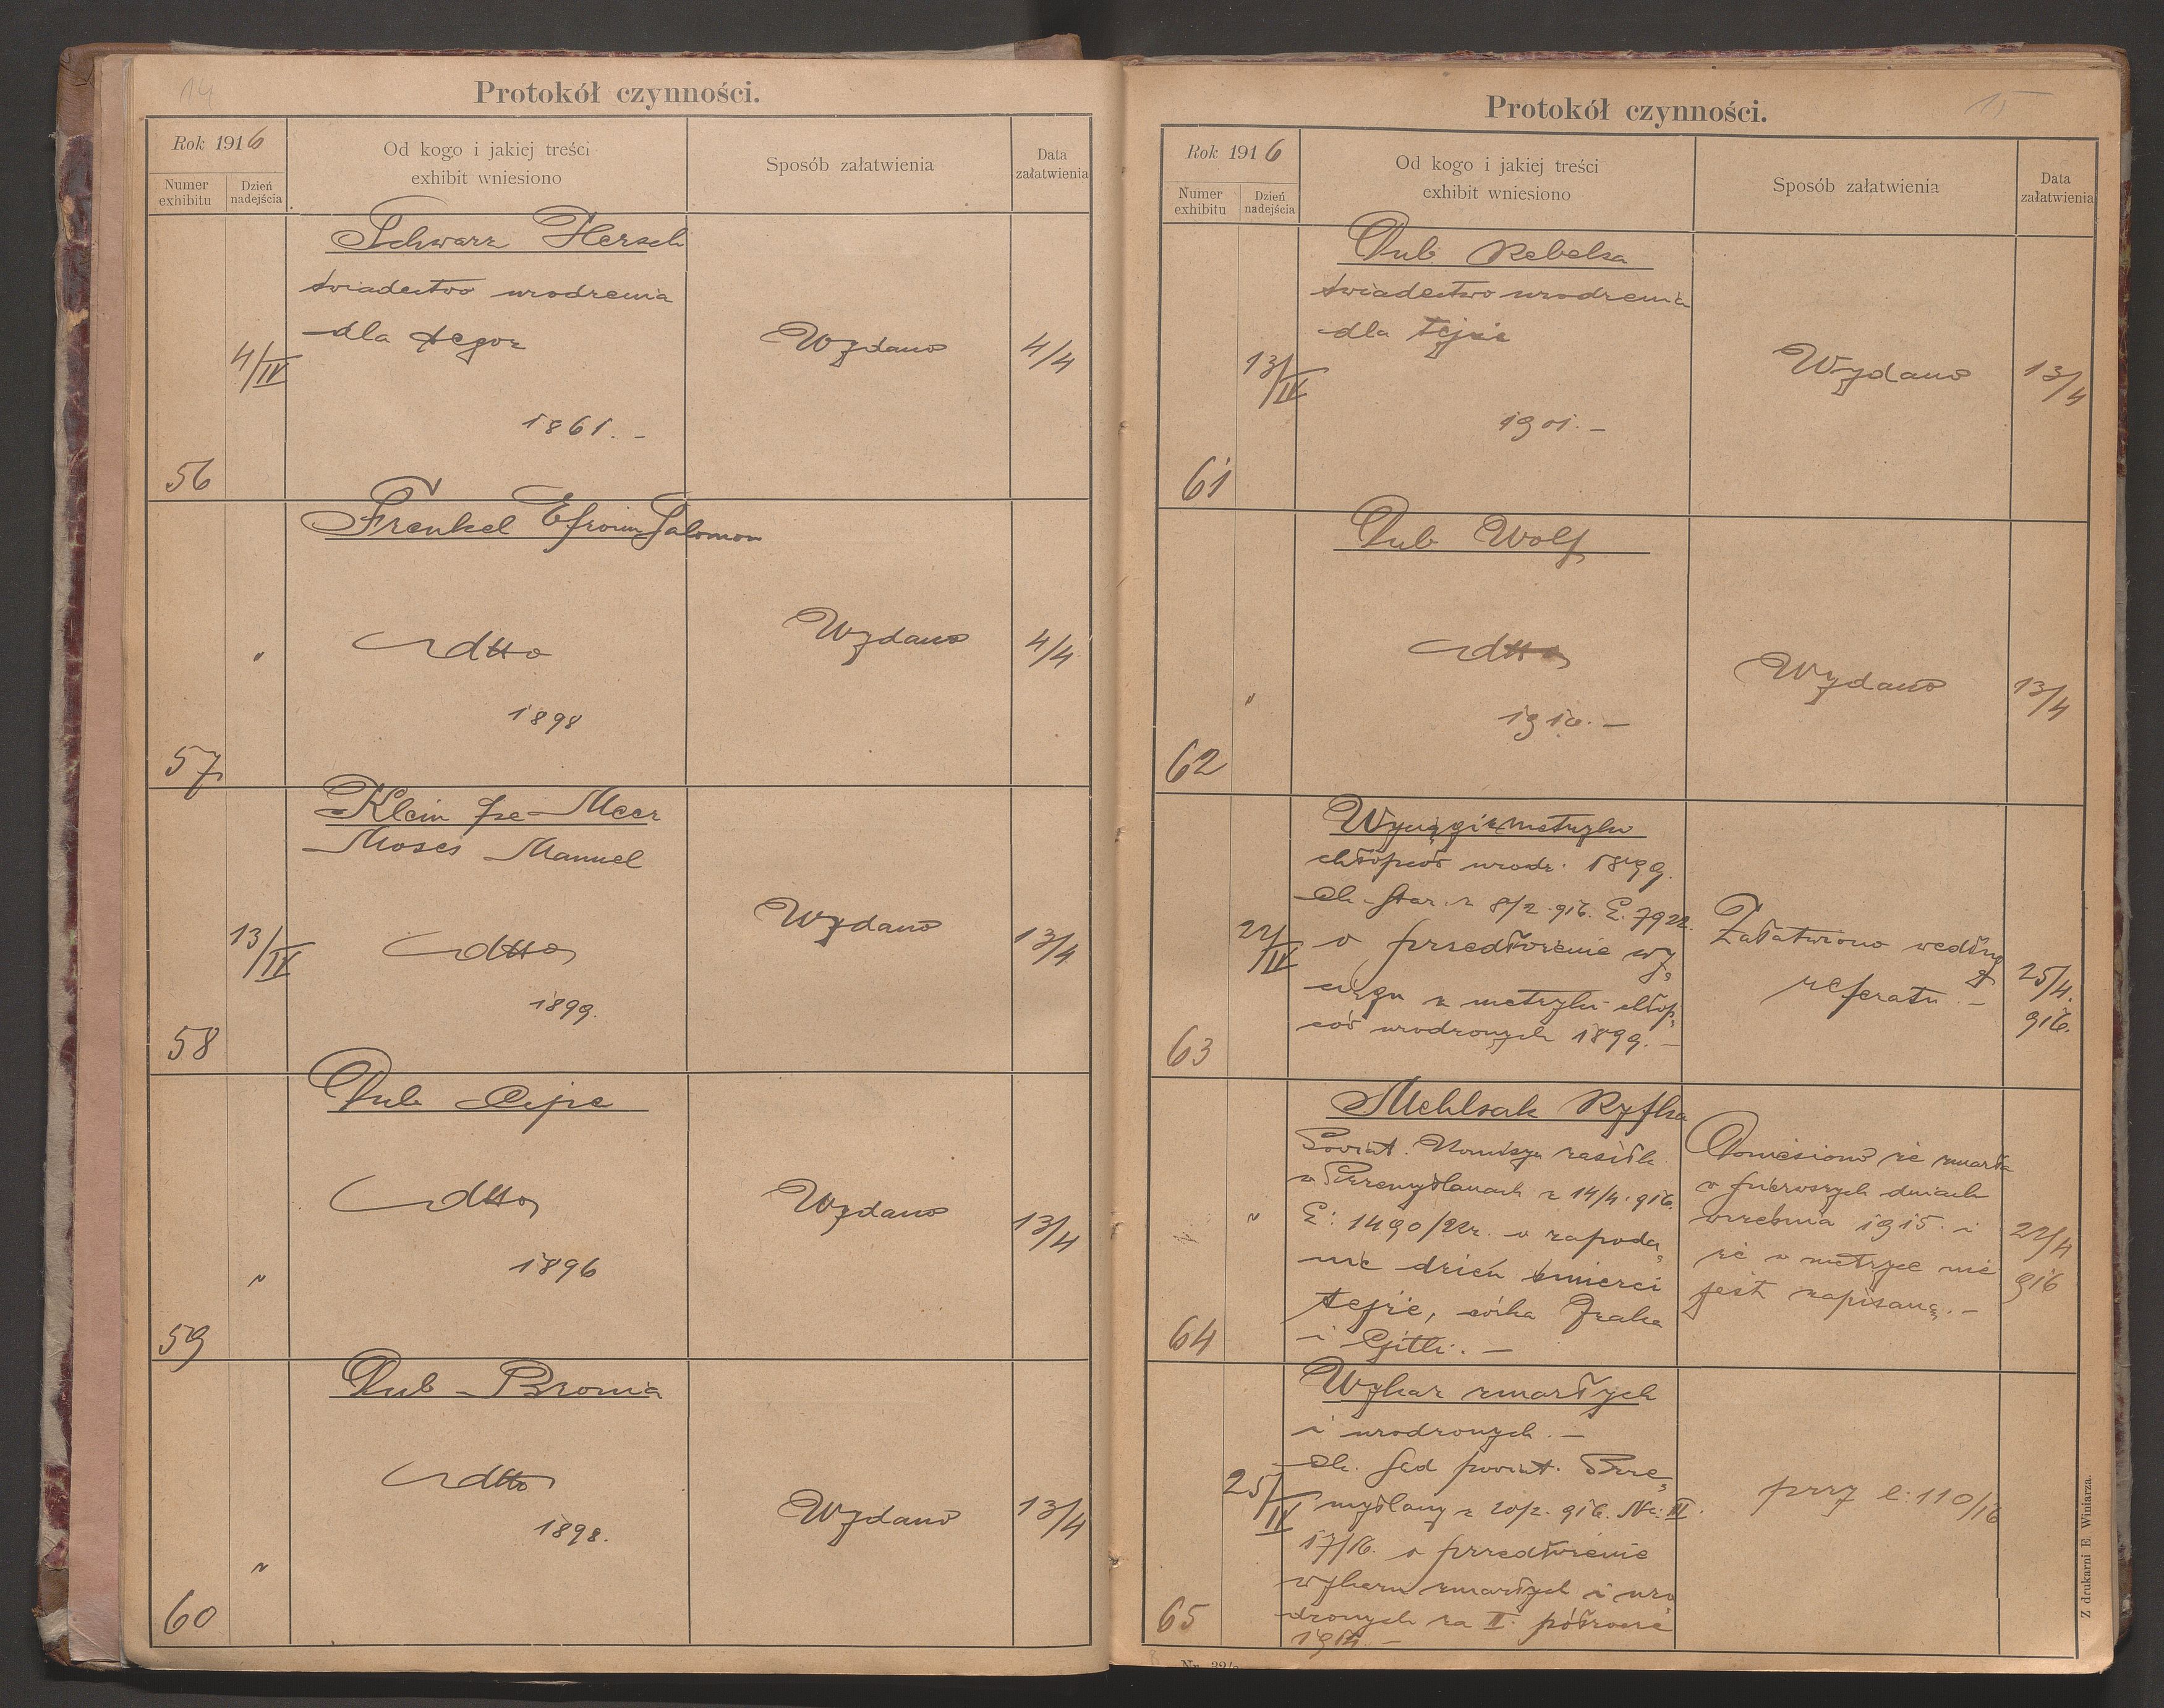 14
Protokół czynności.
Rok 1916
Od kogo i jakiej treści
exhibit wniesiono
Sposób załatwienia
Data
załatwienia
Numer
exhibitu
Dzień
nadejścia
Schwarz Hersch
świadectwo urodzenia
dla tegoż
4/IV
Wydano
4/4
1861. -
56
Frenkel Efroim Salomon
"
dtto
Wydano
4/4
1898
57
Klein Meer
Moses Manuel
13/IV
dtto
Wydano
13/4
1899.
58
Dub
dtto
Wydano
13/4
"
1896
59
Dub Bronia
dtto
Wydano
13/4
"
1898.
60
15
Protokół czynności.
Rok 1916
Od kogo i jakiej treści
exhibit wniesiono
Sposób załatwienia
Data
załatwienia
Numer
exhibitu
Dzień
nadejścia
Dub Rebeka
świadectwo urodzenia
dla tejże
13/IV
Wydano
13/4
1901. -
61
Dub Wolf
dtto
"
Wydano
13/4
1910. -
62
Wyciągi z metryki
chłopców urodz. 1899.
Star. z 8/2 916.
22/IV
o przedłożenie wy-
ciągu z metryki chłop-
ców urodzonych 1899. -
Załatwiono według
referatu. -
25/4.
916.
63
Mehlsak Ryfka
Powiat. Komisya zasiłk.
w Przemyślanach z 14/4. 916.
"
1490/ o zapoda-
nie dzień śmierci
tejże, córka
i Gitli. -
Doniesiono że zmarła
w pierwszych dniach
września 1915. i
że w metryce nie
jest zapisaną. -
22/4
916
64
Wykaz zmarłych
i urodzonych. -
Sąd powiat. Prze-
myślany z 20/2. 916. III.
25/IV
17/16. o przedłożenie
wykazu zmarłych i uro-
dzonych za II. półrocze
przy l: 110/16
65
Z drukarni E Winiarza.